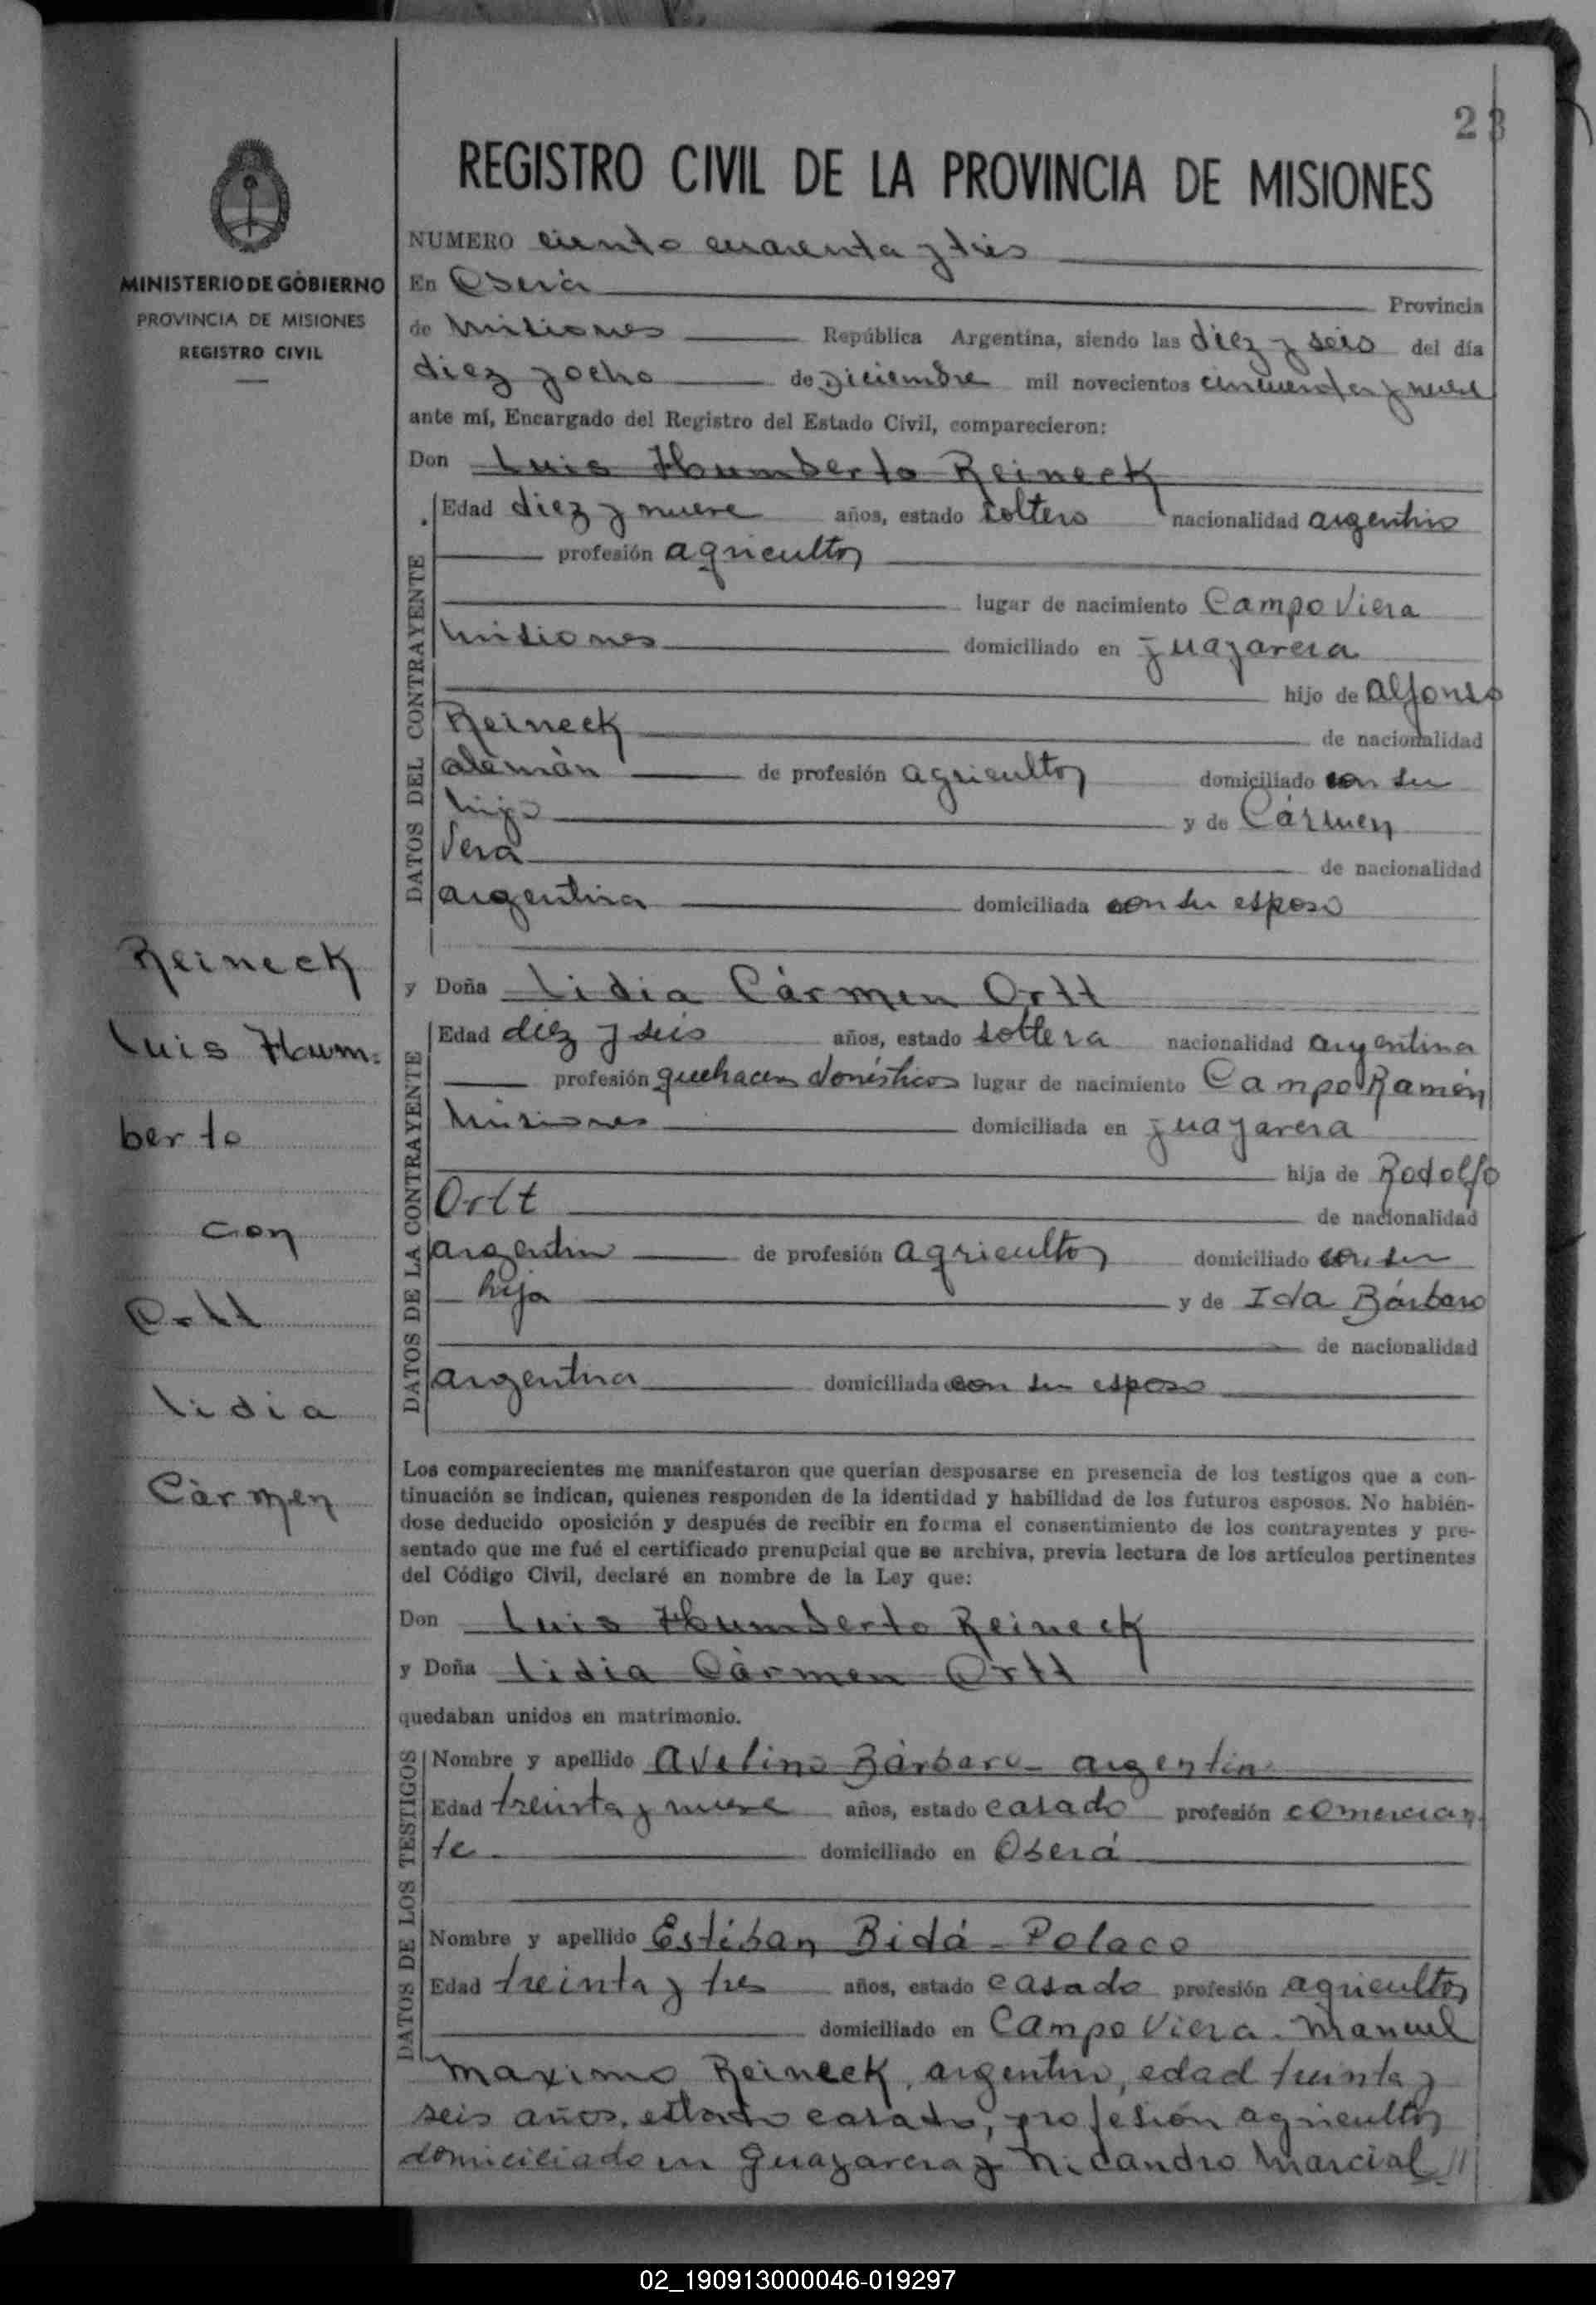 23
REGISTRO CIVIL DE LA PROVINCIA DE MISIONES
MINISTERIO DE GOBIERNO
PROVINCIA DE MISIONES
REGISTRO CIVIL
NUMERO ciento cuarenta y tres
En Oberá Provincia
de Misiones República Argentina, siendo las diez y seis del día
diez y ocho de Diciembre mil novecientos cincuenta y nueve
ante mí, Encargado del Registro del Estado Civil, comparecieron:
Don Luis Humberto Reineck
DATOS DEL CONTRAYENTE
Edad diez y nueve años, estado soltero nacionalidad argentino
profesión agricultor
lugar de nacimiento Campo Viera
Misiones domiciliado en guayarera
hijo de Alfonso
Reineck de nacionalidad
alemán de profesión agricultor domiciliado con su
hijo y de Cármen
Vera de nacionalidad
argentina domiciliada con su esposo
Reineck
Luis Hum-
berto
con
Ortt
Lidia
Cármen
y Doña Lidia Cármen Ortt
DATOS DE LA CONTRAYENTE
Edad diez y seis años, estado soltera nacionalidad argentina
profesión quehaceres domésticos lugar de nacimiento Campo Ramón
Misiones domiciliada en guayarera
hija de Rodolfo
Ortt de nacionalidad
argentino de profesión agricultor domiciliado con su
hija y de Ida Bárbaro
de nacionalidad
argentina domiciliada con su esposo
Los comparecientes me manifestaron que querían desposarse en presencia de los testigos que a con-
tinuación se indican, quienes responden de la identidad y habilidad de los futuros esposos. No habién-
dose deducido oposición y después de recibir en forma el consentimiento de los contrayentes y pre-
sentado que me fué el certificado prenupcial que se archiva, previa lectura de los artículos pertinentes
del Código Civil, declaré en nombre de la Ley que:
Don Luis Humberto Reineck
y Doña Lidia Cármen Ortt
quedaban unidos en matrimonio.
DATOS DE LOS TESTIGOS
Nombre y apellido Avelino Bárbaro - argentino
Edad treinta y nueve años, estado casado profesión comercian-
te domiciliado en Oberá
Nombre y apellido Estéban Bidá - Polaco
Edad treinta y tres años, estado casado profesión agricultor
domiciliado en Campo Viera - Manuel
Maximo Reineck, argentino, edad treinta y
seis años, estado casado, profesión agricultor
domiciliado en guayarera y Nicandro Marcial //
02_190913000046-019297